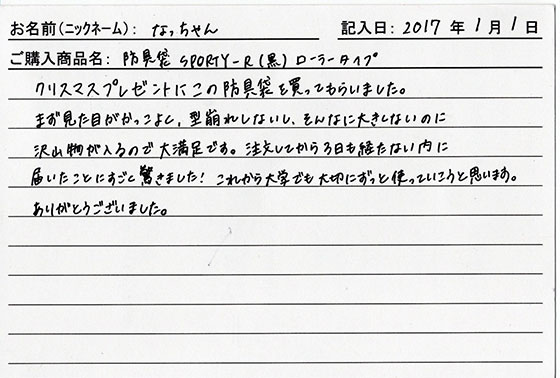 お名前(ニックネーム): なっちゃん 記入日: 2017 年 1 月 1 日
ご購入商品名: 防具袋 SPORTY-R(黒) ローラータイプ
クリスマスプレゼントにこの防具袋を買ってもらいました。
まず見た目がかっこよし、型崩れしないし、そんなに大きくないのに
沢山物が入るので大満足です。注文してから3日も経たない内に
届いたことにすごく驚きました! これから大学でも大切にずっと使っていこうと思います。
ありがとうございました。